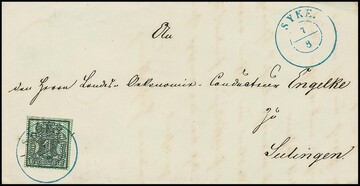 SYKE.
7
8
An
den Herrn Landes-Oekonomie-Conducteur Engelke
zu
Sulingen.
1